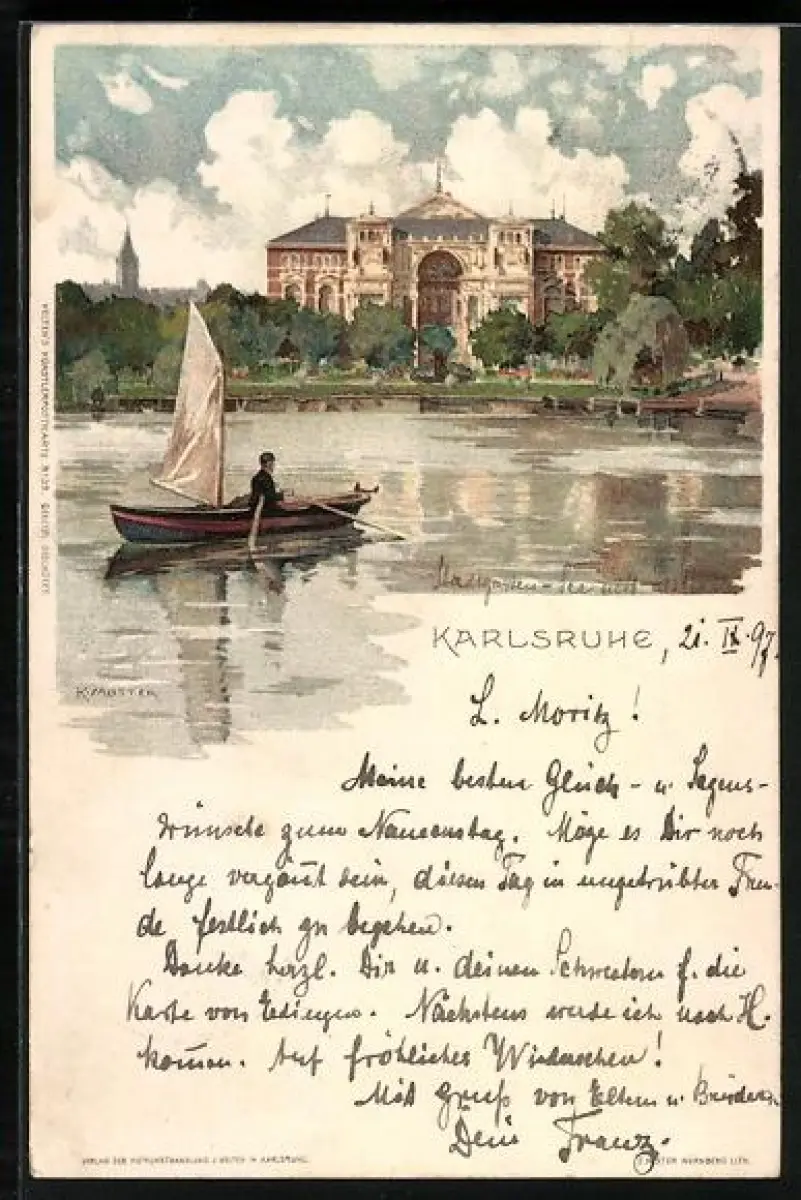 VELTEN'S KÜNSTLERPOSTKARTE
Stadtgarten-See mit
KARLSRUHE, 21. IX. 97.
K. MUTTER
L. Moritz!
Meine besten Glück- u. Segens-
wünsche zum Namenstag. Möge es Dir noch
lange vergönnt sein, diesen Tag in ungetrübter Freu-
de festlich zu begehen.
Danke herzl. Dir u. deinen Schwestern f. die
Karte von Edingen. Nächstens werde ich nach H.
kommen. Auf fröhliches Wiedersehen!
Mit Gruß von Eltern u. Brüdern
Dein Franz.
VERLAG DER HOFKUNSTHANDLUNG J. VELTEN IN KARLSRUHE.
NÜRNBERG LITH.